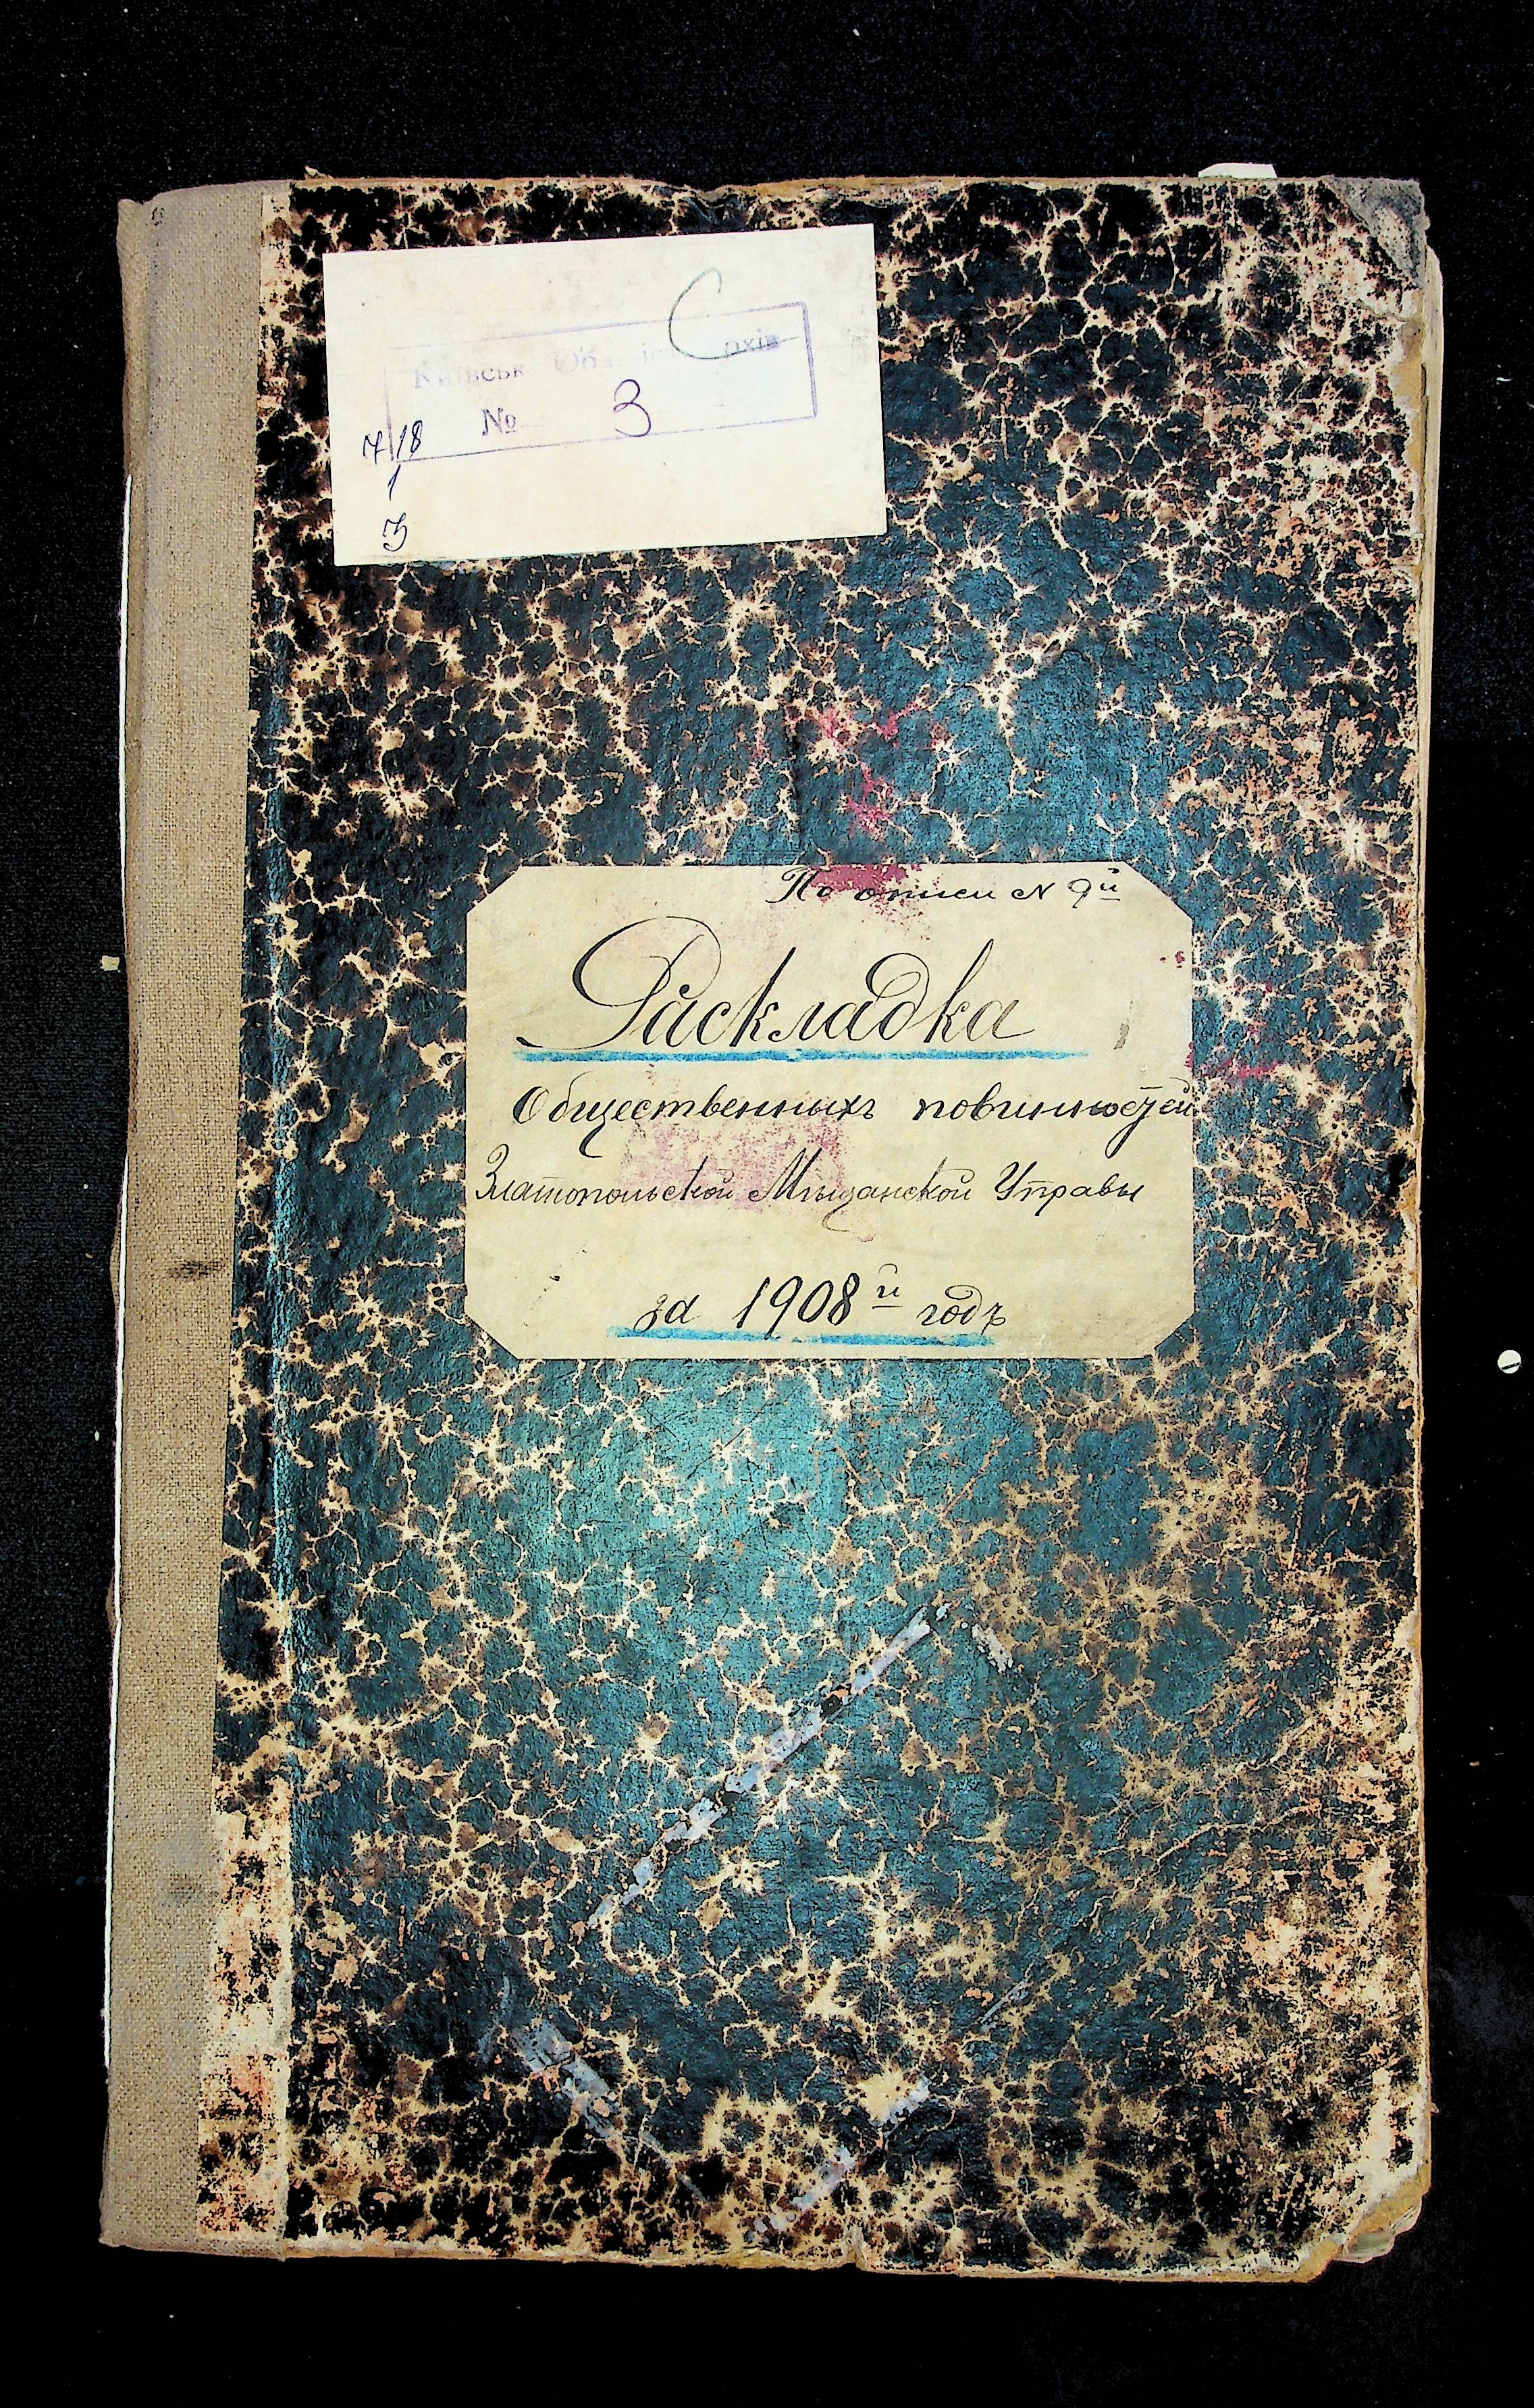 С
№ 3
718
1
3
По описи № 9й
Раскладка
Общественныхъ повинностей
Златопольской Мѣщанской Управы
за 1908й годъ